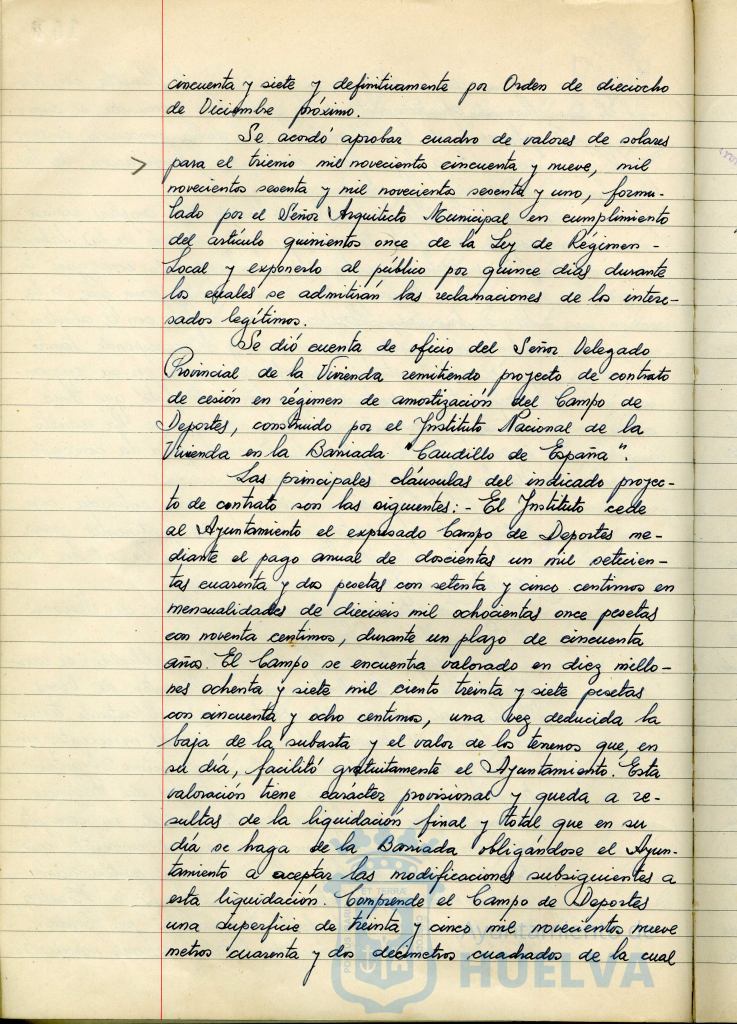 cincuenta y siete y definitivamente por Orden de dieciocho
de Diciembre próximo.
Se acordó aprobar cuadro de valores de solares
para el trienio mil novecientos cincuenta y nueve, mil
novecientos sesenta y mil novecientos sesenta y uno, formu-
lado por el Señor Arquitecto Municipal en cumplimiento
del artículo quinientos once de la Ley de Régimen -
Local y exponerlo al público por quince días durante
los cuales se admitirán las reclamaciones de los intere-
sados legítimos.
Se dió cuenta de oficio del Señor Delegado
Provincial de la Vivienda remitiendo proyecto de contrato
de cesión en régimen de amortización del Campo de
Deportes, construido por el Instituto Nacional de la
Vivienda en la Barriada "Caudillo de España".
Las principales cláusulas del indicado proyec-
to de contrato son las siguientes: - El Instituto cede
al Ayuntamiento el expresado Campo de Deportes me-
diante el pago anual de doscientas un mil setecien-
tas cuarenta y dos pesetas con setenta y cinco centimos en
mensualidades de dieciseis mil ochocientas once pesetas
con noventa centimos, durante un plazo de cincuenta
años. El Campo se encuentra valorado en diez millo-
nes ochenta y siete mil ciento treinta y siete pesetas
con cincuenta y ocho centimos, una vez deducida la
baja de la subasta y el valor de los terrenos que, en
su día, facilitó gratuitamente el Ayuntamiento. Esta
valoración tiene carácter provisional y queda a re-
sultas de la liquidación final y total que en su
día se haga de la Barriada obligándose el Ayun-
tamiento a aceptar las modificaciones subsiguientes a
esta liquidación. Comprende el Campo de Deportes
una superficie de treinta y cinco mil novecientos nueve
metros cuarenta y dos decimetros cuadrados de la cual
Ayuntamiento de
HUELVA